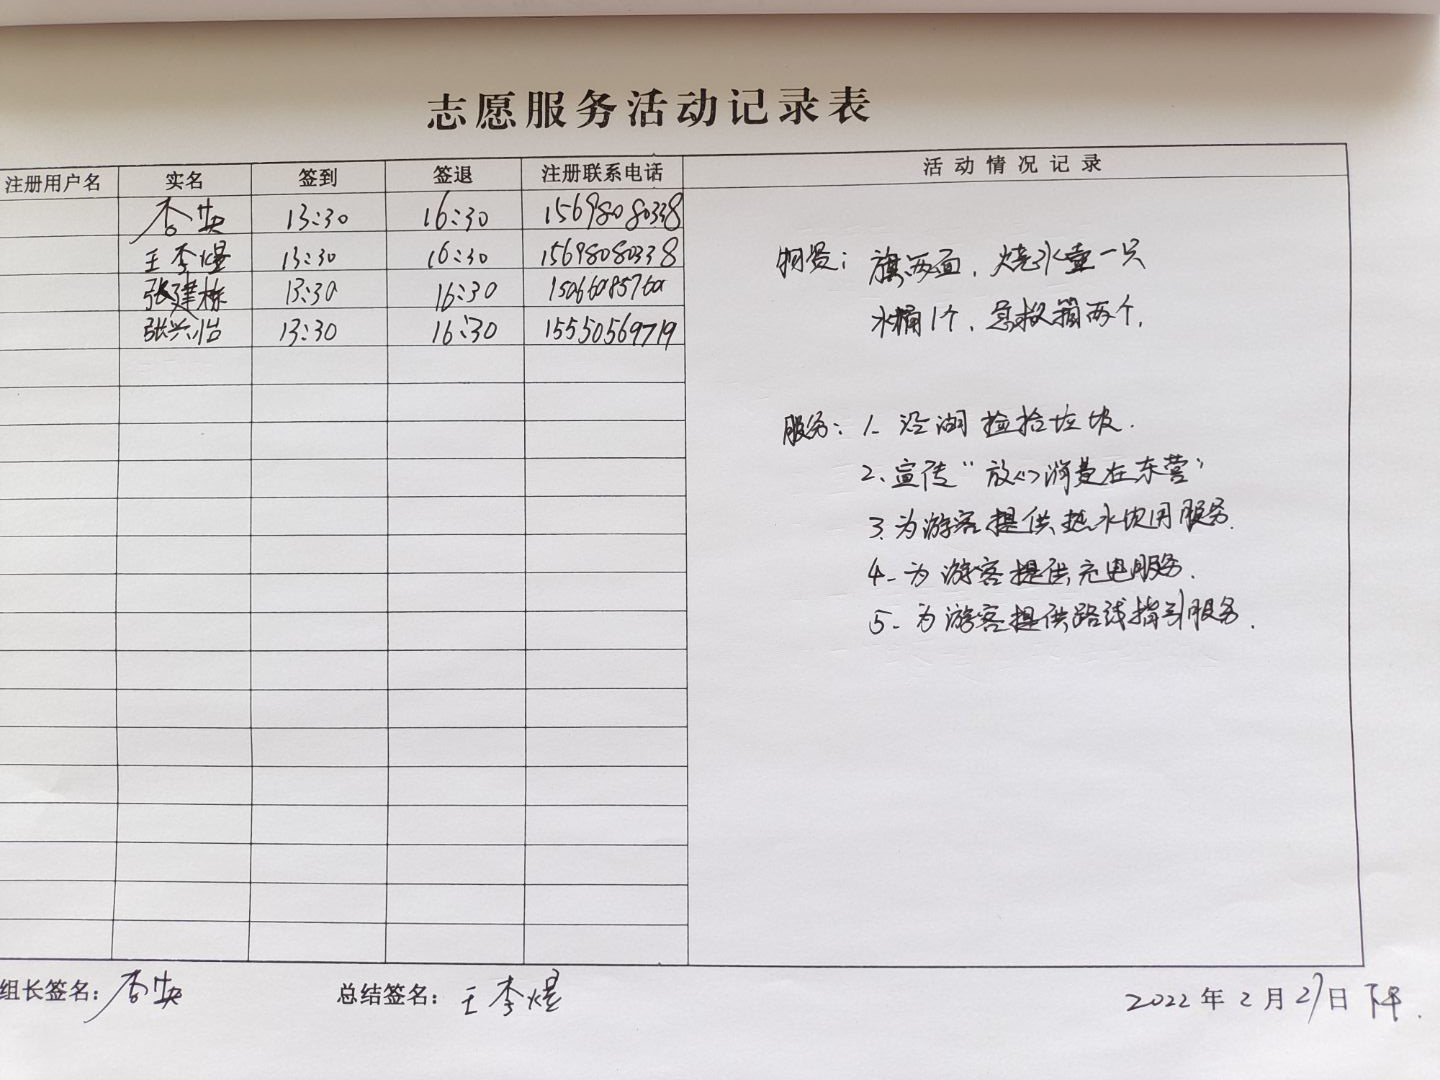 志愿服务活动记录表
注册用户名 实名 签到 签退 注册联系电话 活动情况记录
13:30 16:30 15698080338
王李煜 13:30 16:30 15698080338
张建栋 13:30 16:30
张兴怡 13:30 16:30 15550569719
物资：旗两面，烧水壶一只
水桶1个，急救箱两个，
服务：1. 沿湖捡拾垃圾.
2、宣传“放心消费在东营”
3、为游客提供热水饮用服务.
4- 为游客提供充电服务.
5- 为游客提供路线指引服务.
组长签名： 总结签名：王李煜 2022年2月27日 下午.